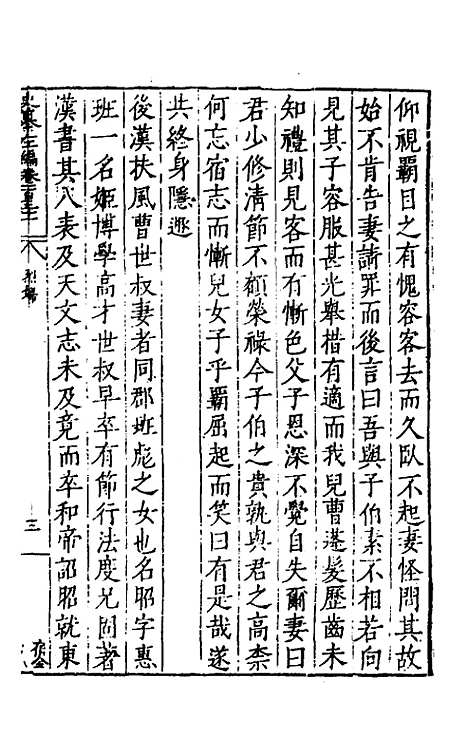 仰視霸目之有愧容客去而久臥不起妻怪問其故
始不肯告妻請罪而後言曰吾與子伯素不相若向
見其子容服甚光舉措有適而我兒曹蓬髮歷齒未
知禮則見客而有慚色父子恩深不覺自失爾妻曰
君少修清節不顧榮祿今子伯之貴孰與君之高柰
何忘宿志而慚兒女子乎霸屈起而笑曰有是哉遂
共終身隱遯
後漢扶風曹世叔妻者同郡班彪之女也名昭字惠
班一名姬博學高才世叔早卒有節行法度兄固著
漢書其八表及天文志未及竟而卒和帝詔昭就東
三